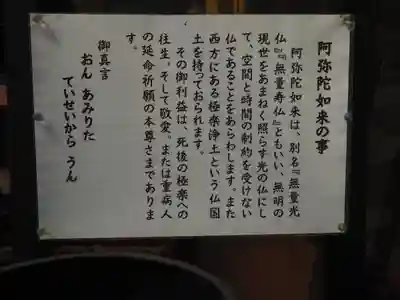 阿弥陀如来の事
阿弥陀如来は、別名『無量光
仏』『無量寿仏』ともいい、無明の
現世をあまねく照らす光の仏にし
て、空間と時間の制約を受けない
仏であることをあらわします。また
西方にある極楽浄土という仏国
土を持っておられます。
その御利益は、死後の極楽への
往生、そして敬愛。または重病人
の延命祈願の本尊さまでありま
す。
御真言
おん あみりた
ていせいから うん